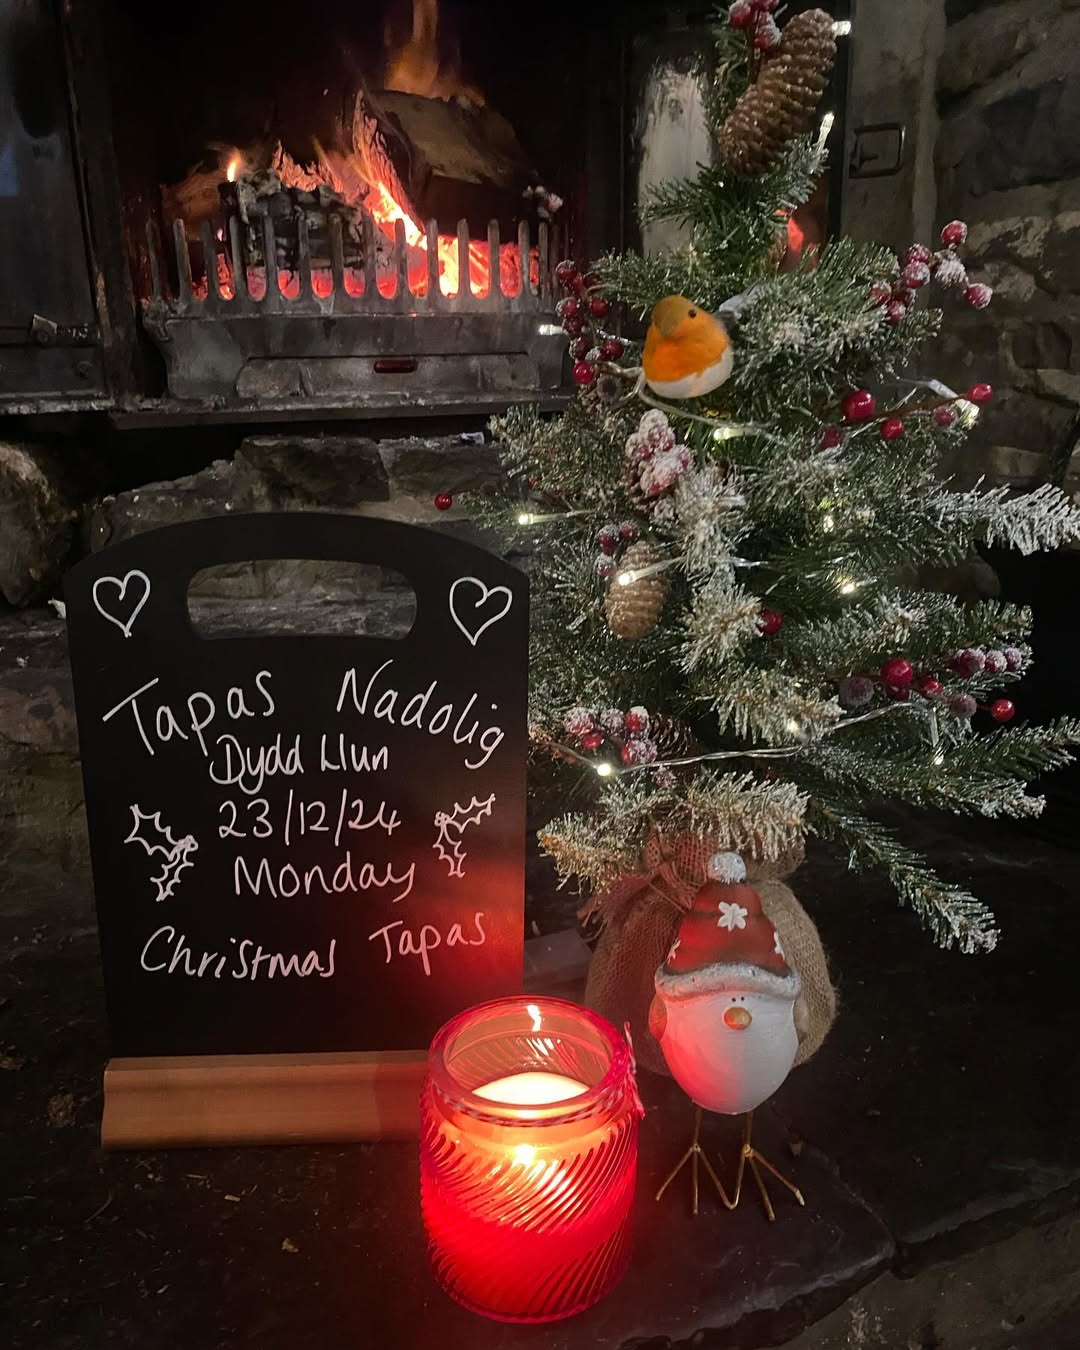 Tapas Nadolig
Dydd Llun
23/12/24
Monday
Christmas Tapas